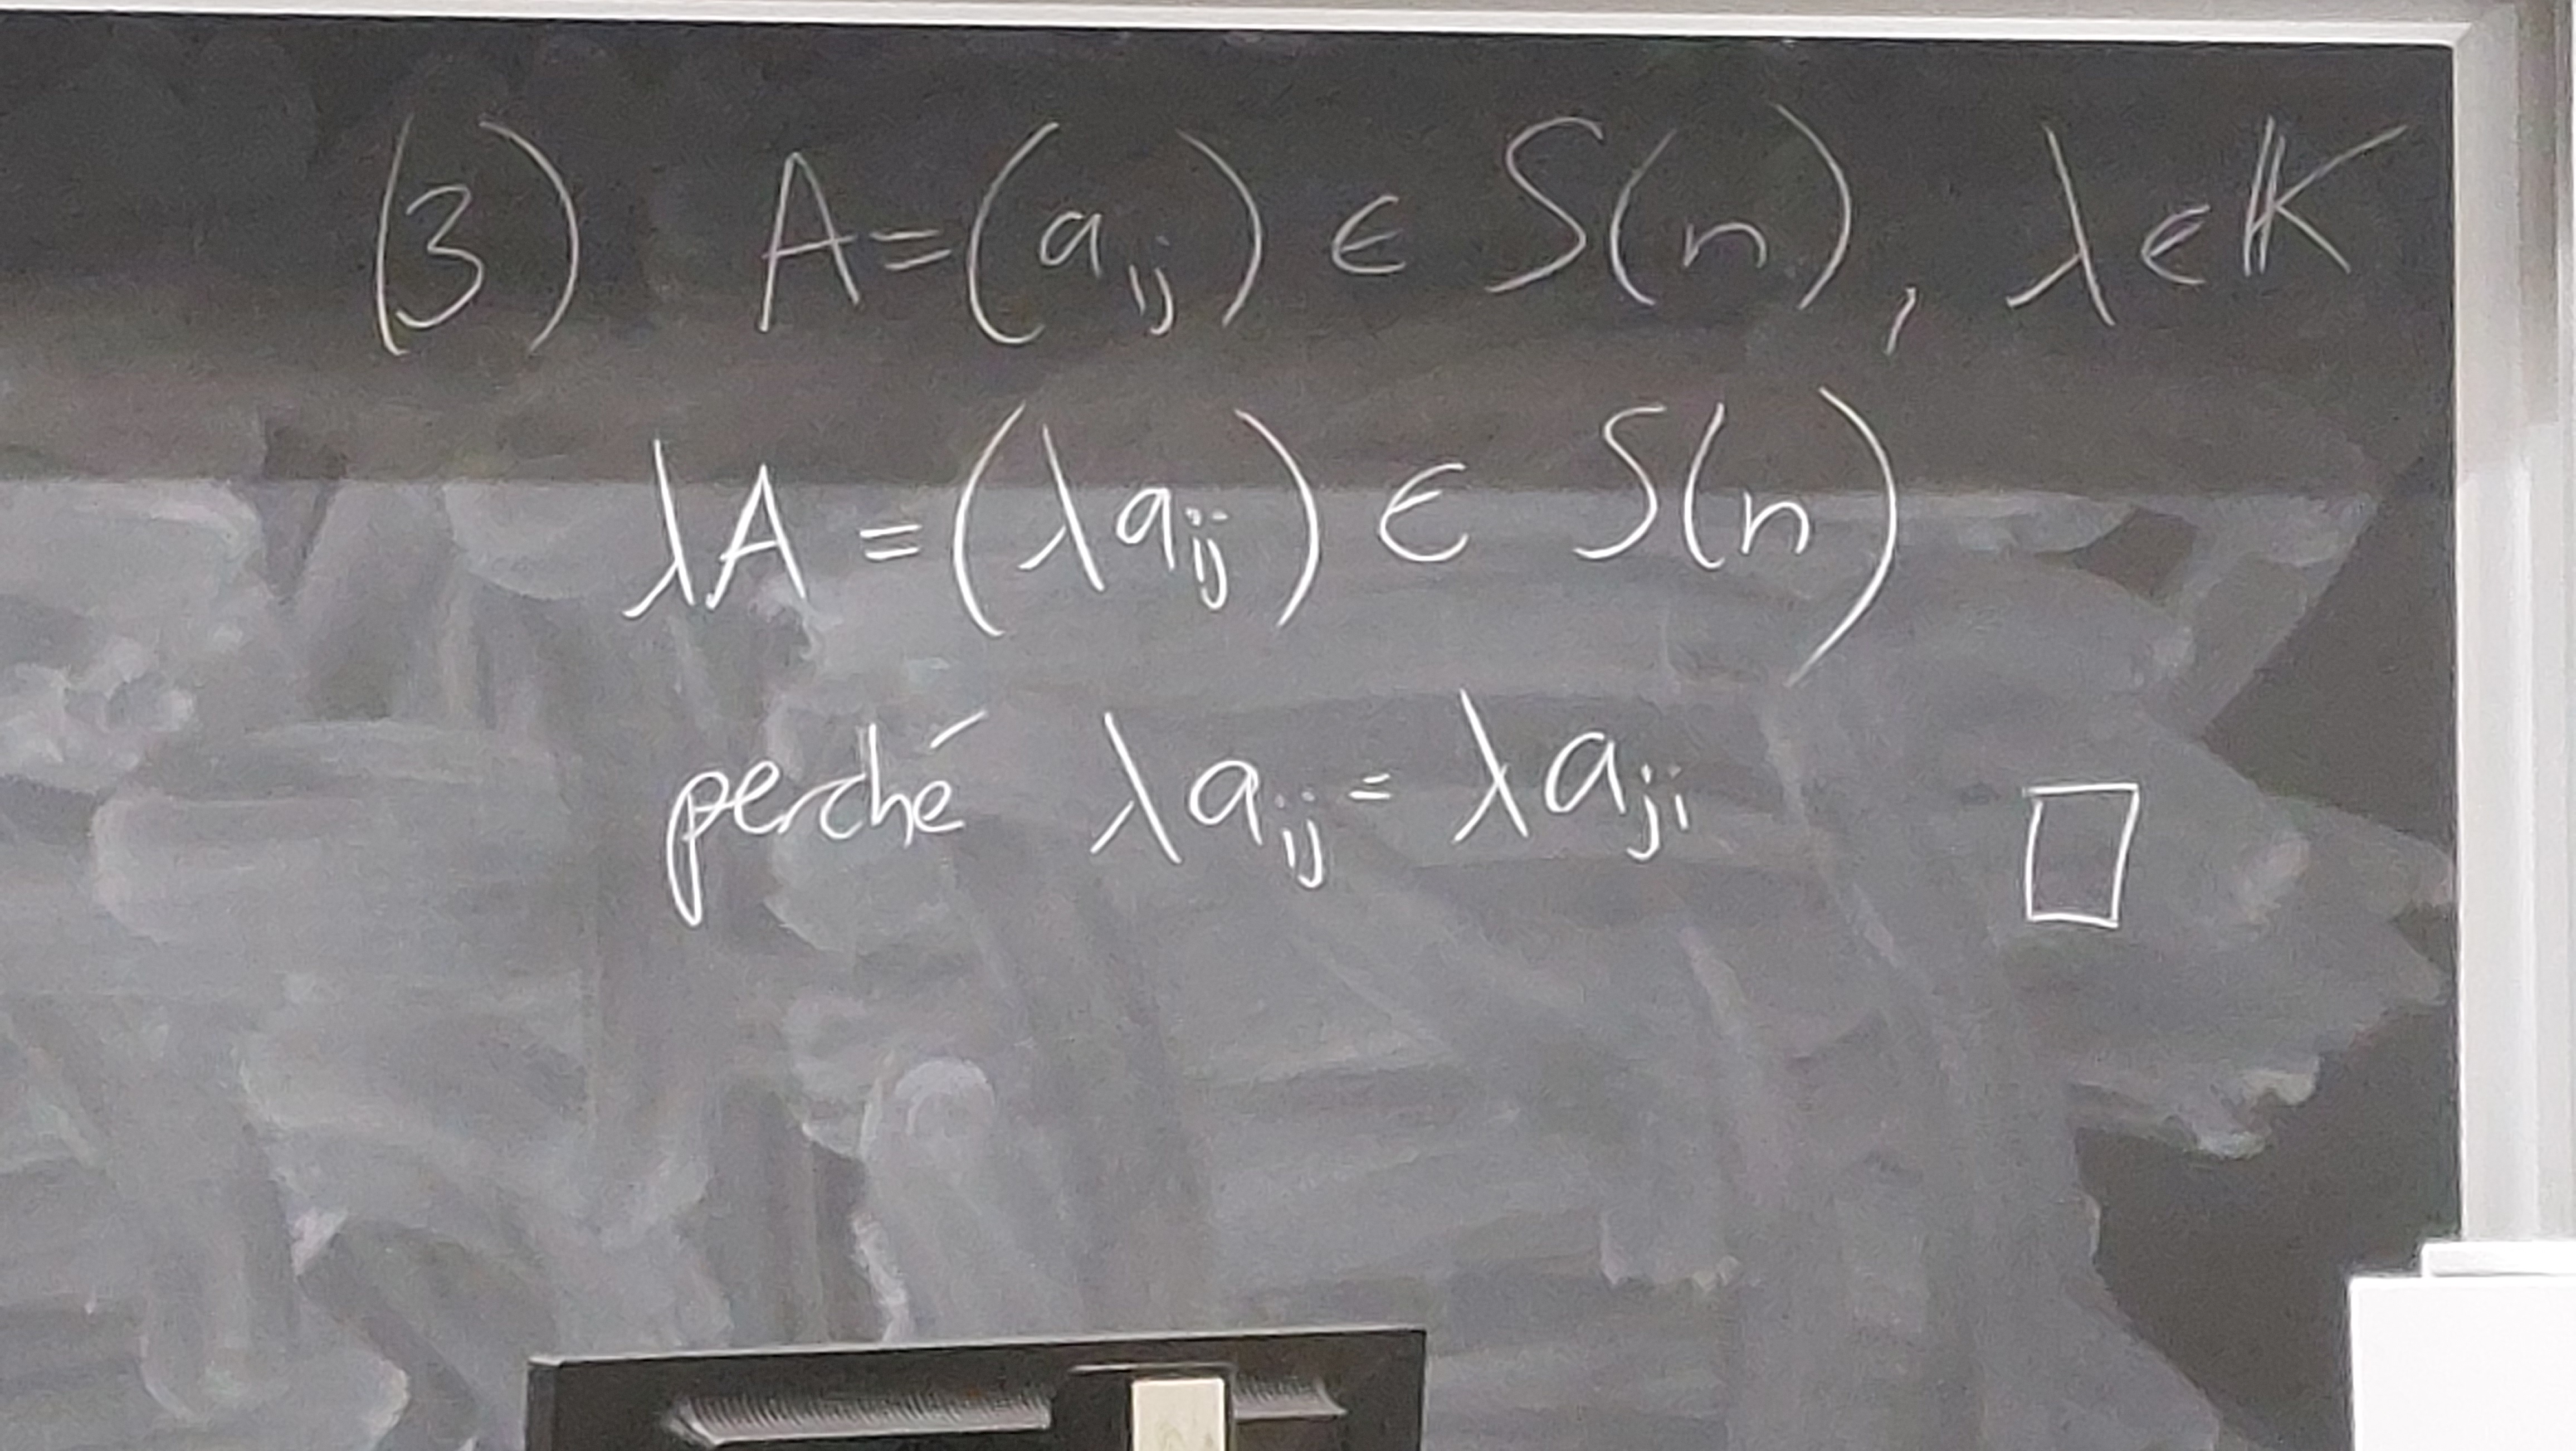 (3) A=(a_ij) ∈ S(n), λ∈𝕂
λA=(λa_ij) ∈ S(n)
perché λa_ij=λa_ji □